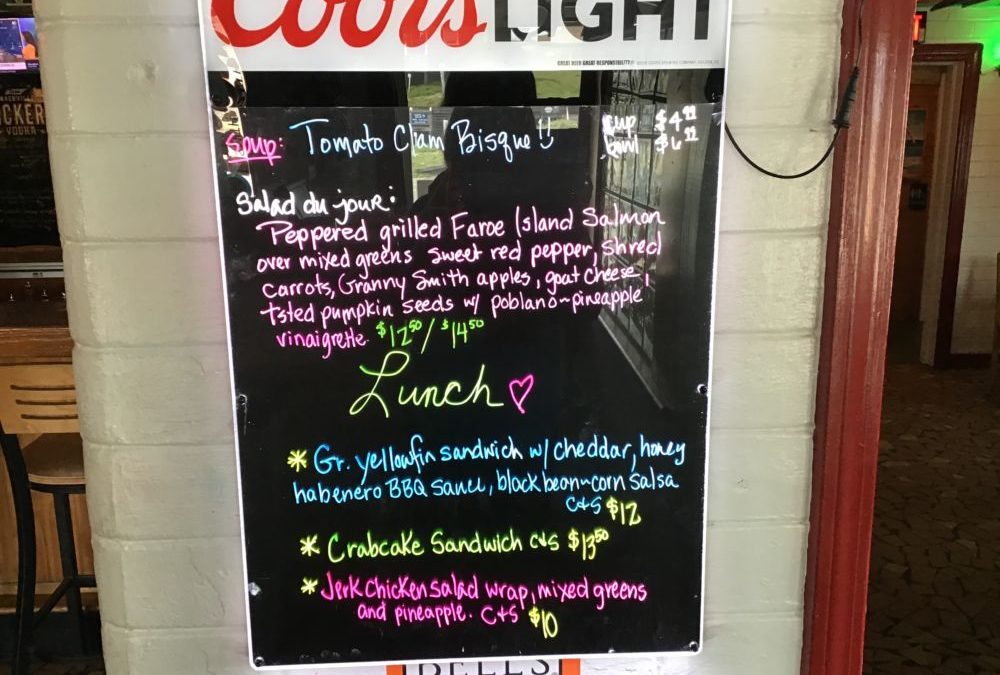 Coors LIGHT
GREAT BEER GREAT RESPONSIBILITY
Soup: Tomato Clam Bisque
cup $4
bowl $6
Salad du jour:
Peppered grilled Faroe Island Salmon
over mixed greens sweet red pepper, shred
carrots, Granny Smith apples, goat cheese,
tsted pumpkin seeds w/ poblano-pineapple
vinaigrette. $12.50 / $14.50
Lunch
* Gr. yellowfin sandwich w/ cheddar, honey
habenero BBQ sauce, black bean-corn salsa
C+S $12
* Crabcake Sandwich C+S $13.50
* Jerk chicken salad wrap, mixed greens
and pineapple. C+S $10
BELLS
VODKA